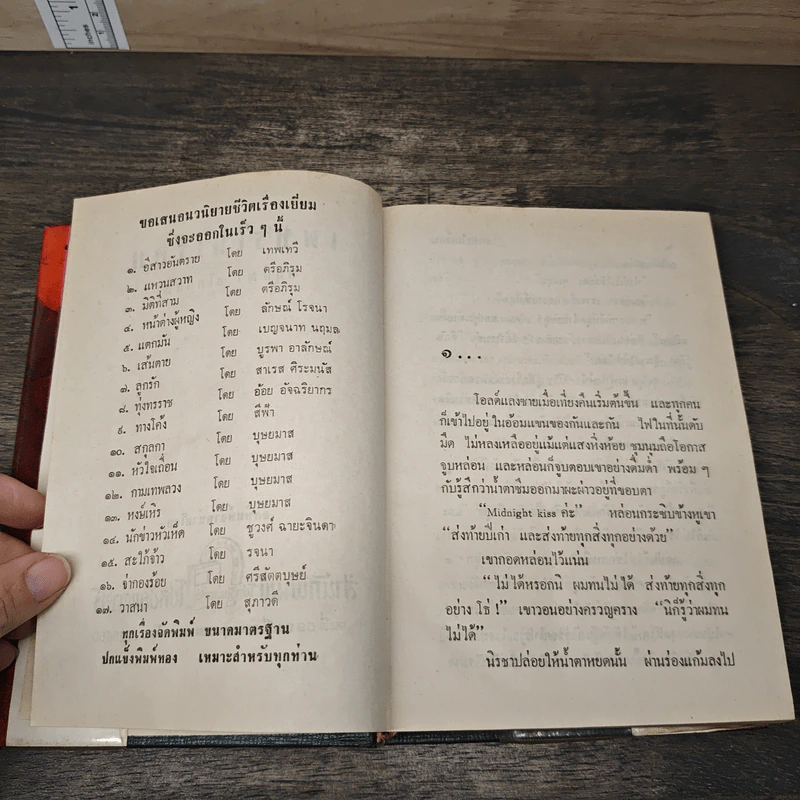 inches
1
2
ขอเสนอนวนิยายชีวิตเรื่องเยี่ยม
ซึ่งจะออกในเร็ว ๆ นี้
๑. อีสาวอันตราย โดย เทพเทวี
๒. แหวนสวาท โดย ตรีอภิรุม
๓. มิติที่สาม โดย ตรีอภิรุม
๔. หน้าต่างผู้หญิง โดย ลักษณ์ โรจนา
๕. แตกมัน โดย เบญจนาท นฤมล
๖. เส้นตาย โดย บูรพา อาลักษณ์
๗. ลูกรัก โดย สาเรส ศิระมนัส
๘. ทุ่งทรราช โดย อ้อย อัจฉริยากร
๙. ทางโค้ง โดย สีฟ้า
๑๐. สกุลกา โดย บุษยมาส
๑๑. หัวใจเถื่อน โดย บุษยมาส
๑๒. กามเทพลวง โดย บุษยมาส
๑๓. หงษ์เหิร โดย บุษยมาส
๑๔. นักข่าวหัวเห็ด โดย ชูวงศ์ ฉายะจินดา
๑๕. สะใภ้จ้าว โดย รจนา
๑๖. จ่ากองร้อย โดย ศรีสัตตบุษย์
๑๗. วาสนา โดย สุภาวดี
ทุกเรื่องจัดพิมพ์ ขนาดมาตรฐาน
ปกแข็งพิมพ์ทอง เหมาะสำหรับทุกท่าน
๑...
โอลด์แลงซายเมื่อเที่ยงคืนเริ่มต้นขึ้น และทุกคน
ก็เข้าไปอยู่ในอ้อมแขนของกันและกัน ไฟในที่นั้นดับ
มืด ไม่หลงเหลืออยู่แม้แต่แสงหิ่งห้อย ชุมนุมถือโอกาส
จูบหล่อน และหล่อนก็จูบตอบเขาอย่างดื่มด่ำ พร้อม ๆ
กับรู้สึกว่าน้ำตาซึมออกมาผะผ่าวอยู่ที่ขอบตา
“Midnight kiss ค่ะ” หล่อนกระซิบข้างหูเขา
“ส่งท้ายปีเก่า และส่งท้ายทุกสิ่งทุกอย่างด้วย”
เขากอดหล่อนไว้แน่น
“ไม่ได้หรอกนิ ผมทนไม่ได้ ส่งท้ายทุกสิ่งทุก
อย่าง โธ่!” เขาวอนอย่างครวญคราง “นิก็รู้ว่าผมทน
ไม่ได้”
นิรชาปล่อยให้น้ำตาหยดนั้น ผ่านร่องแก้มลงไป